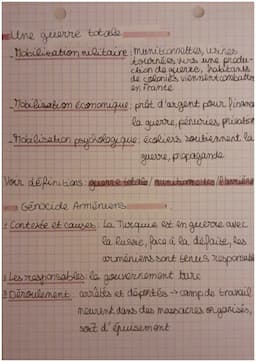 Une guerre totale
- Mobilisation militaire : munitionnettes, usines
tournées vers une produc-
tion de guerre, habitants
de colonies viennent combattre
en France
- Mobilisation économique : prêt d'argent pour financer
la guerre, pénuries, privation
- Mobilisation psychologique : écoliers soutiennent la
guerre, propagande
Voir définitions guerre totale / munitionnettes /
Génocide Arméniens
1 Contexte et causes : La Turquie est en guerre avec
la Russie, face à la défaite, les
arméniens sont tenus responsables
2 Les responsables : le gouvernement turc
3 Déroulement : arrêtés et déportés → camp de travail
meurent dans des massacres organisés,
soit d'épuisement